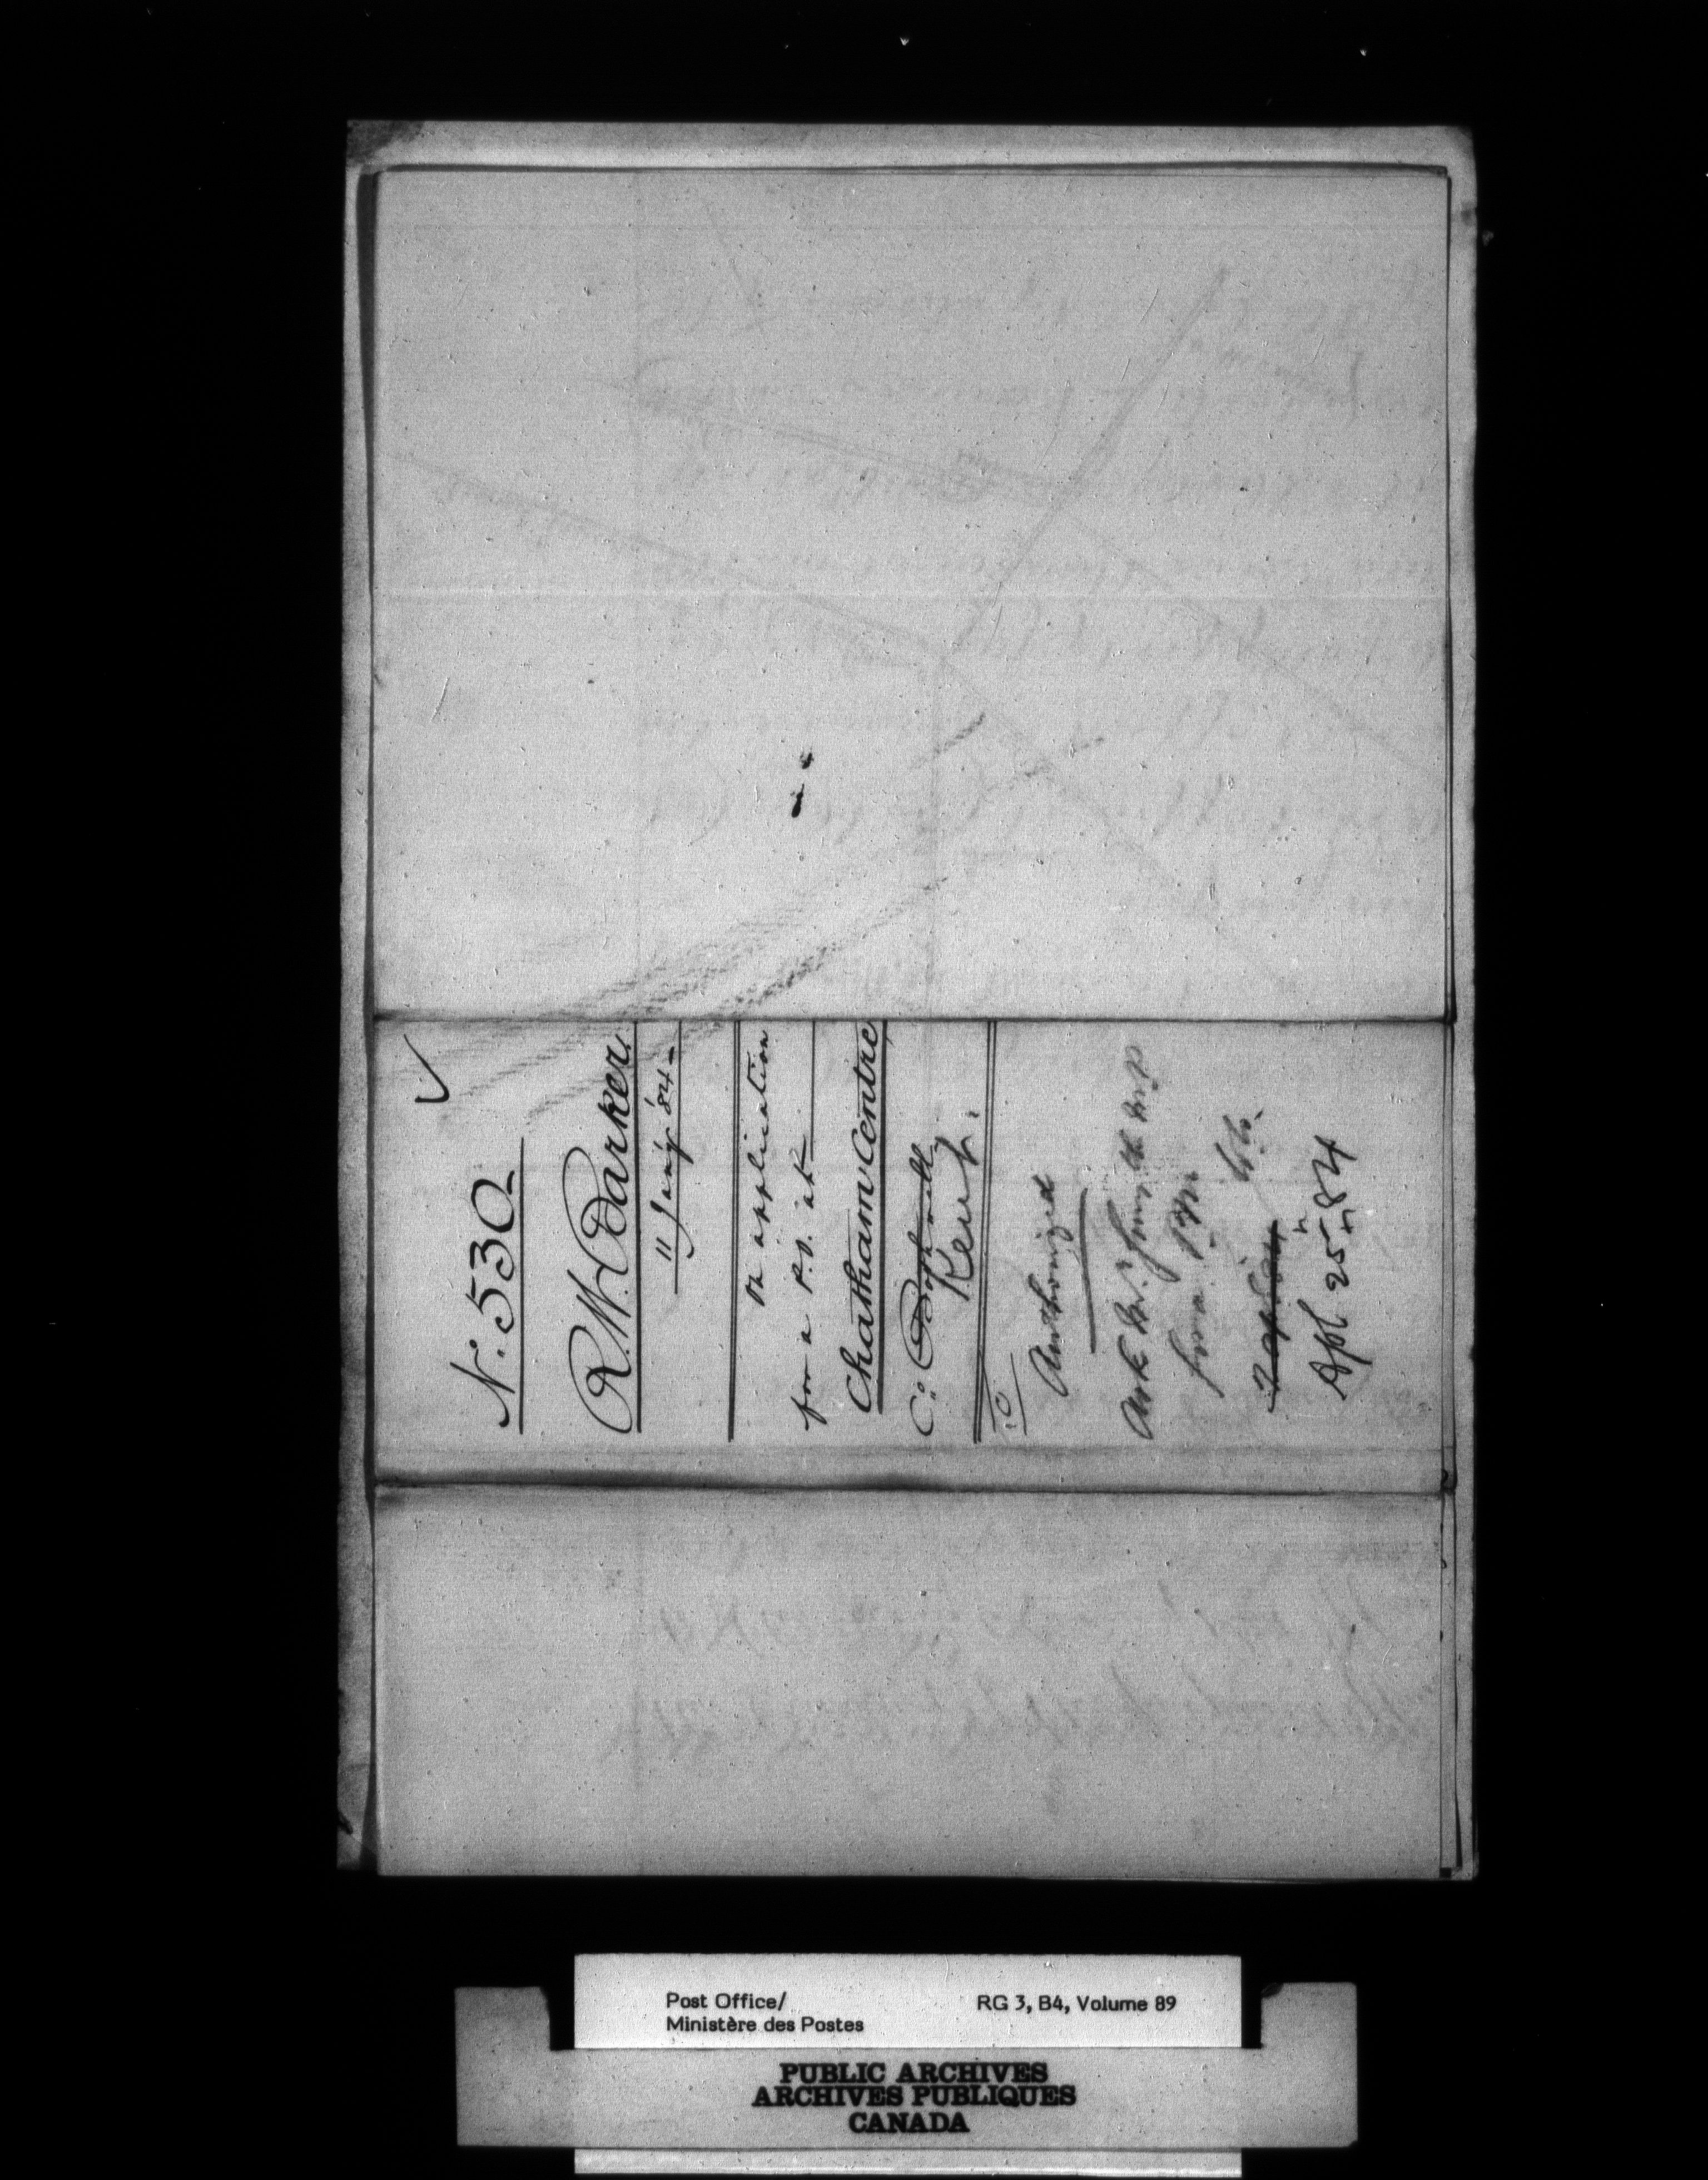 ✓
No. 530
R. W. Barker
11 Jany '84 -
On application
for a P.O. at
Chatham Centre
Co. Bothwell
Kent.
Authorized
Ask Mr. Smyth M.P.
for a PM
Apl 25 84
Post Office/
Ministère des Postes
RG 3, B4, Volume 89
PUBLIC ARCHIVES
ARCHIVES PUBLIQUES
CANADA